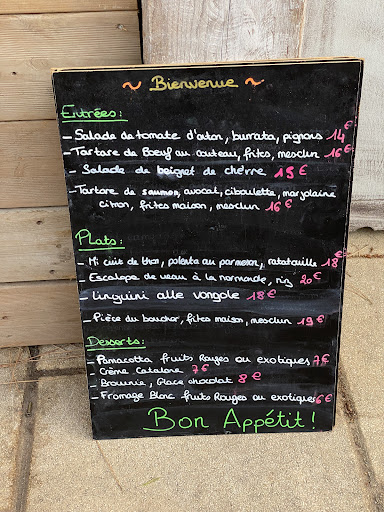 ~ Bienvenue ~
Entrées :
- Salade de tomate d'antan, burrata, pignons 14€
- Tartare de Boeuf au couteau, frites, mesclun 16€
- Salade de beignet de chèvre 15€
- Tartare de saumon, avocat, ciboulette, marjolaine
citron, frites maison, mesclun 16€
Plats :
- Mi cuit de thon, polenta au parmesan, ratatouille 18€
- Escalope de veau à la normande, riz 20€
- Linguini alle vongole 18€
- Pièce du boucher, frites maison, mesclun 19€
Desserts :
- Pannacotta fruits Rouges ou exotiques 7€
- Crème Catalane 7€
- Brownie, Glace chocolat 8€
- Fromage Blanc fruits Rouges ou exotiques 6€
Bon Appétit !